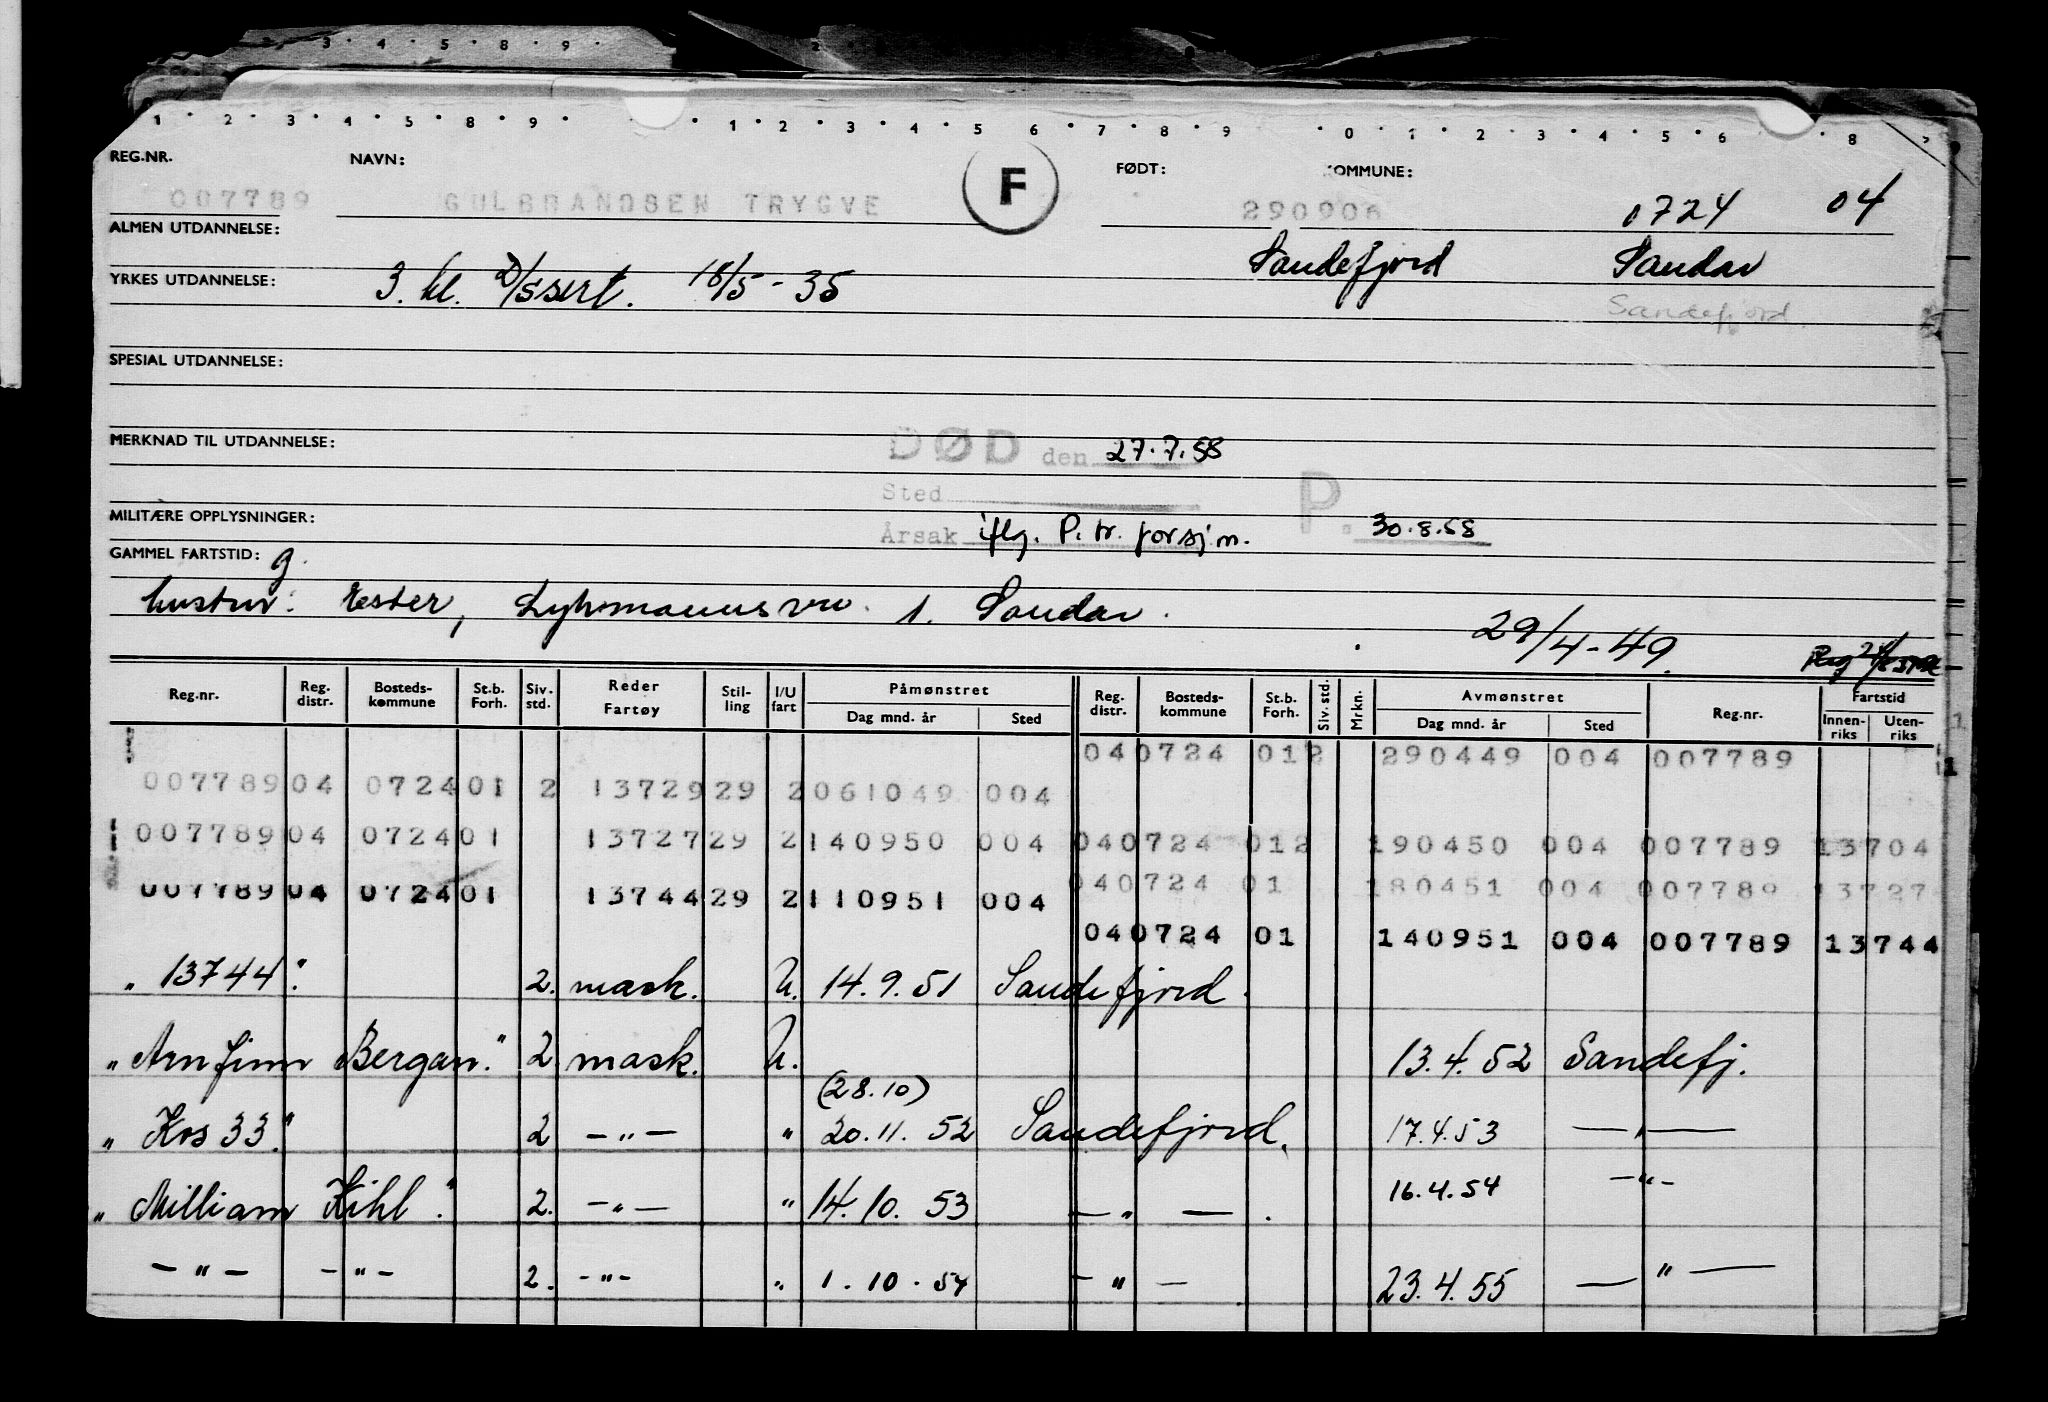 3 · 4 · 5 · 8 · 9 ·
1 · 2 · 3 · 4 · 5 · 8 · 9 · · 1 · 2 · 3 · 4 · 5 · 6 · 7 · 8 · 9 · 0 · 1 · 2 · 3 · 4 · 5 · 6 · 8
REG.NR. NAVN: F FØDT: KOMMUNE:
007789 GULBRANDSEN TRYGVE 290906 0724 04
ALMEN UTDANNELSE: Sandefjord Sandar
YRKES UTDANNELSE: 3. kl. D/ssert. 18/5-35
Sandefjord
SPESIAL UTDANNELSE:
MERKNAD TIL UTDANNELSE: DØD den 27.7.58
Sted P. 30.8.58
MILITÆRE OPPLYSNINGER: Årsak iflg. P.tr. forsj m.
GAMMEL FARTSTID: g.
hustru: Ester, 1. Sandar.
29/4-49.
Reg.nr. Reg. distr. Bosteds-kommune St.b. Forh. Siv. std. Reder Fartøy Stil-ling I/U fart Påmønstret Dag mnd. år Sted Reg. distr. Bosteds-kommune St.b. Forh. Siv. std. Mrkn. Avmønstret Dag mnd. år Sted Reg.nr. Fartstid Innen-riks Uten-riks
040724 012 290449 004 007789
007789 04 0724 01 2 13729 29 2 061049 004
007789 04 0724 01 13727 29 2 140950 004 040724 012 190450 004 007789 13704
007789 04 0724 01 13744 29 2 110951 004 040724 01 180451 004 007789 13727
040724 01 140951 004 007789 13744
"13744". 2. mask. U. 14.9.51 Sandefjord.
"Arnfinn Bergan." 2 mask. U. 13.4.52 Sandefj.
(28.10)
"Kos 33." 2 —"— " 20.11.52 Sandefjord. 17.4.53 —"—
"William Kihl". 2. —"— " 14.10.53 —"— . 16.4.54 —"—
—"— —"— 2. —"— " 1.10.54 —"— 23.4.55 —"—